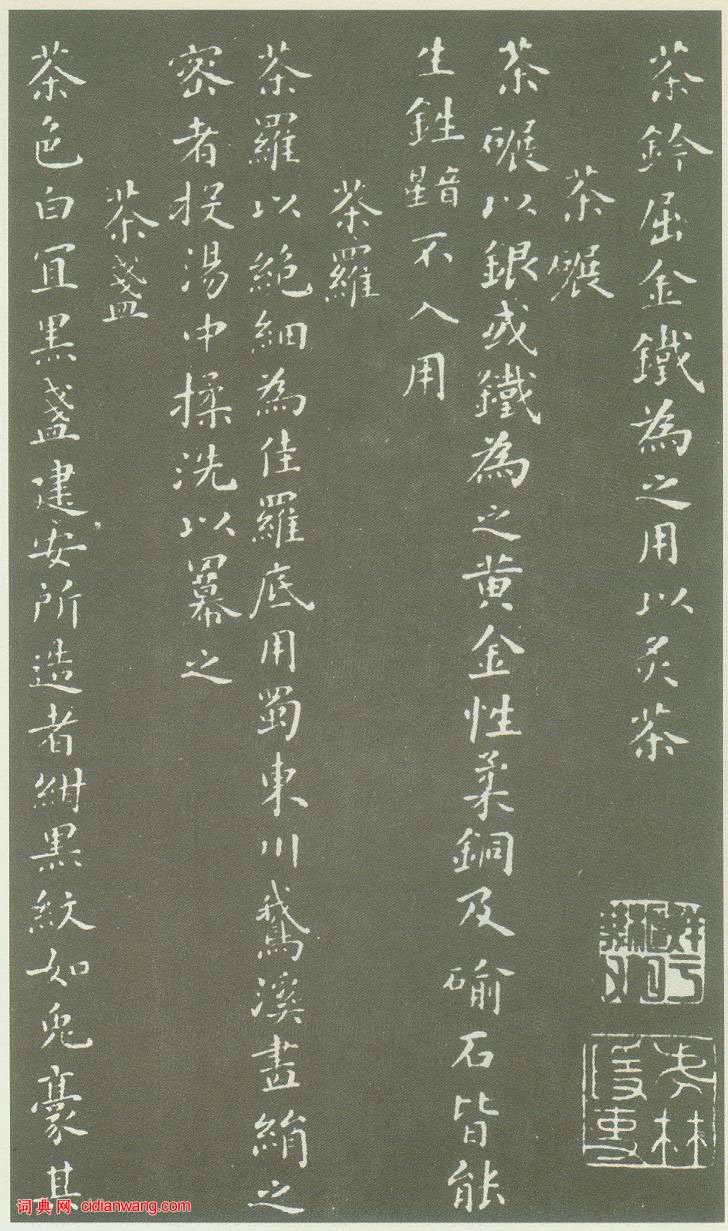 茶鈐屈金鐵為之用以炙茶
茶碾
茶碾以銀或鐵為之黄金性柔銅及石皆能
生鉎音星不入用
茶羅
茶羅以絶細為佳羅底用蜀東川鵝溪畫絹之
密者投湯中揉洗以羃之
茶盞
茶色白冝黒盞建安所造者紺黒紋如兔豪其
词典网 cidianwang.com